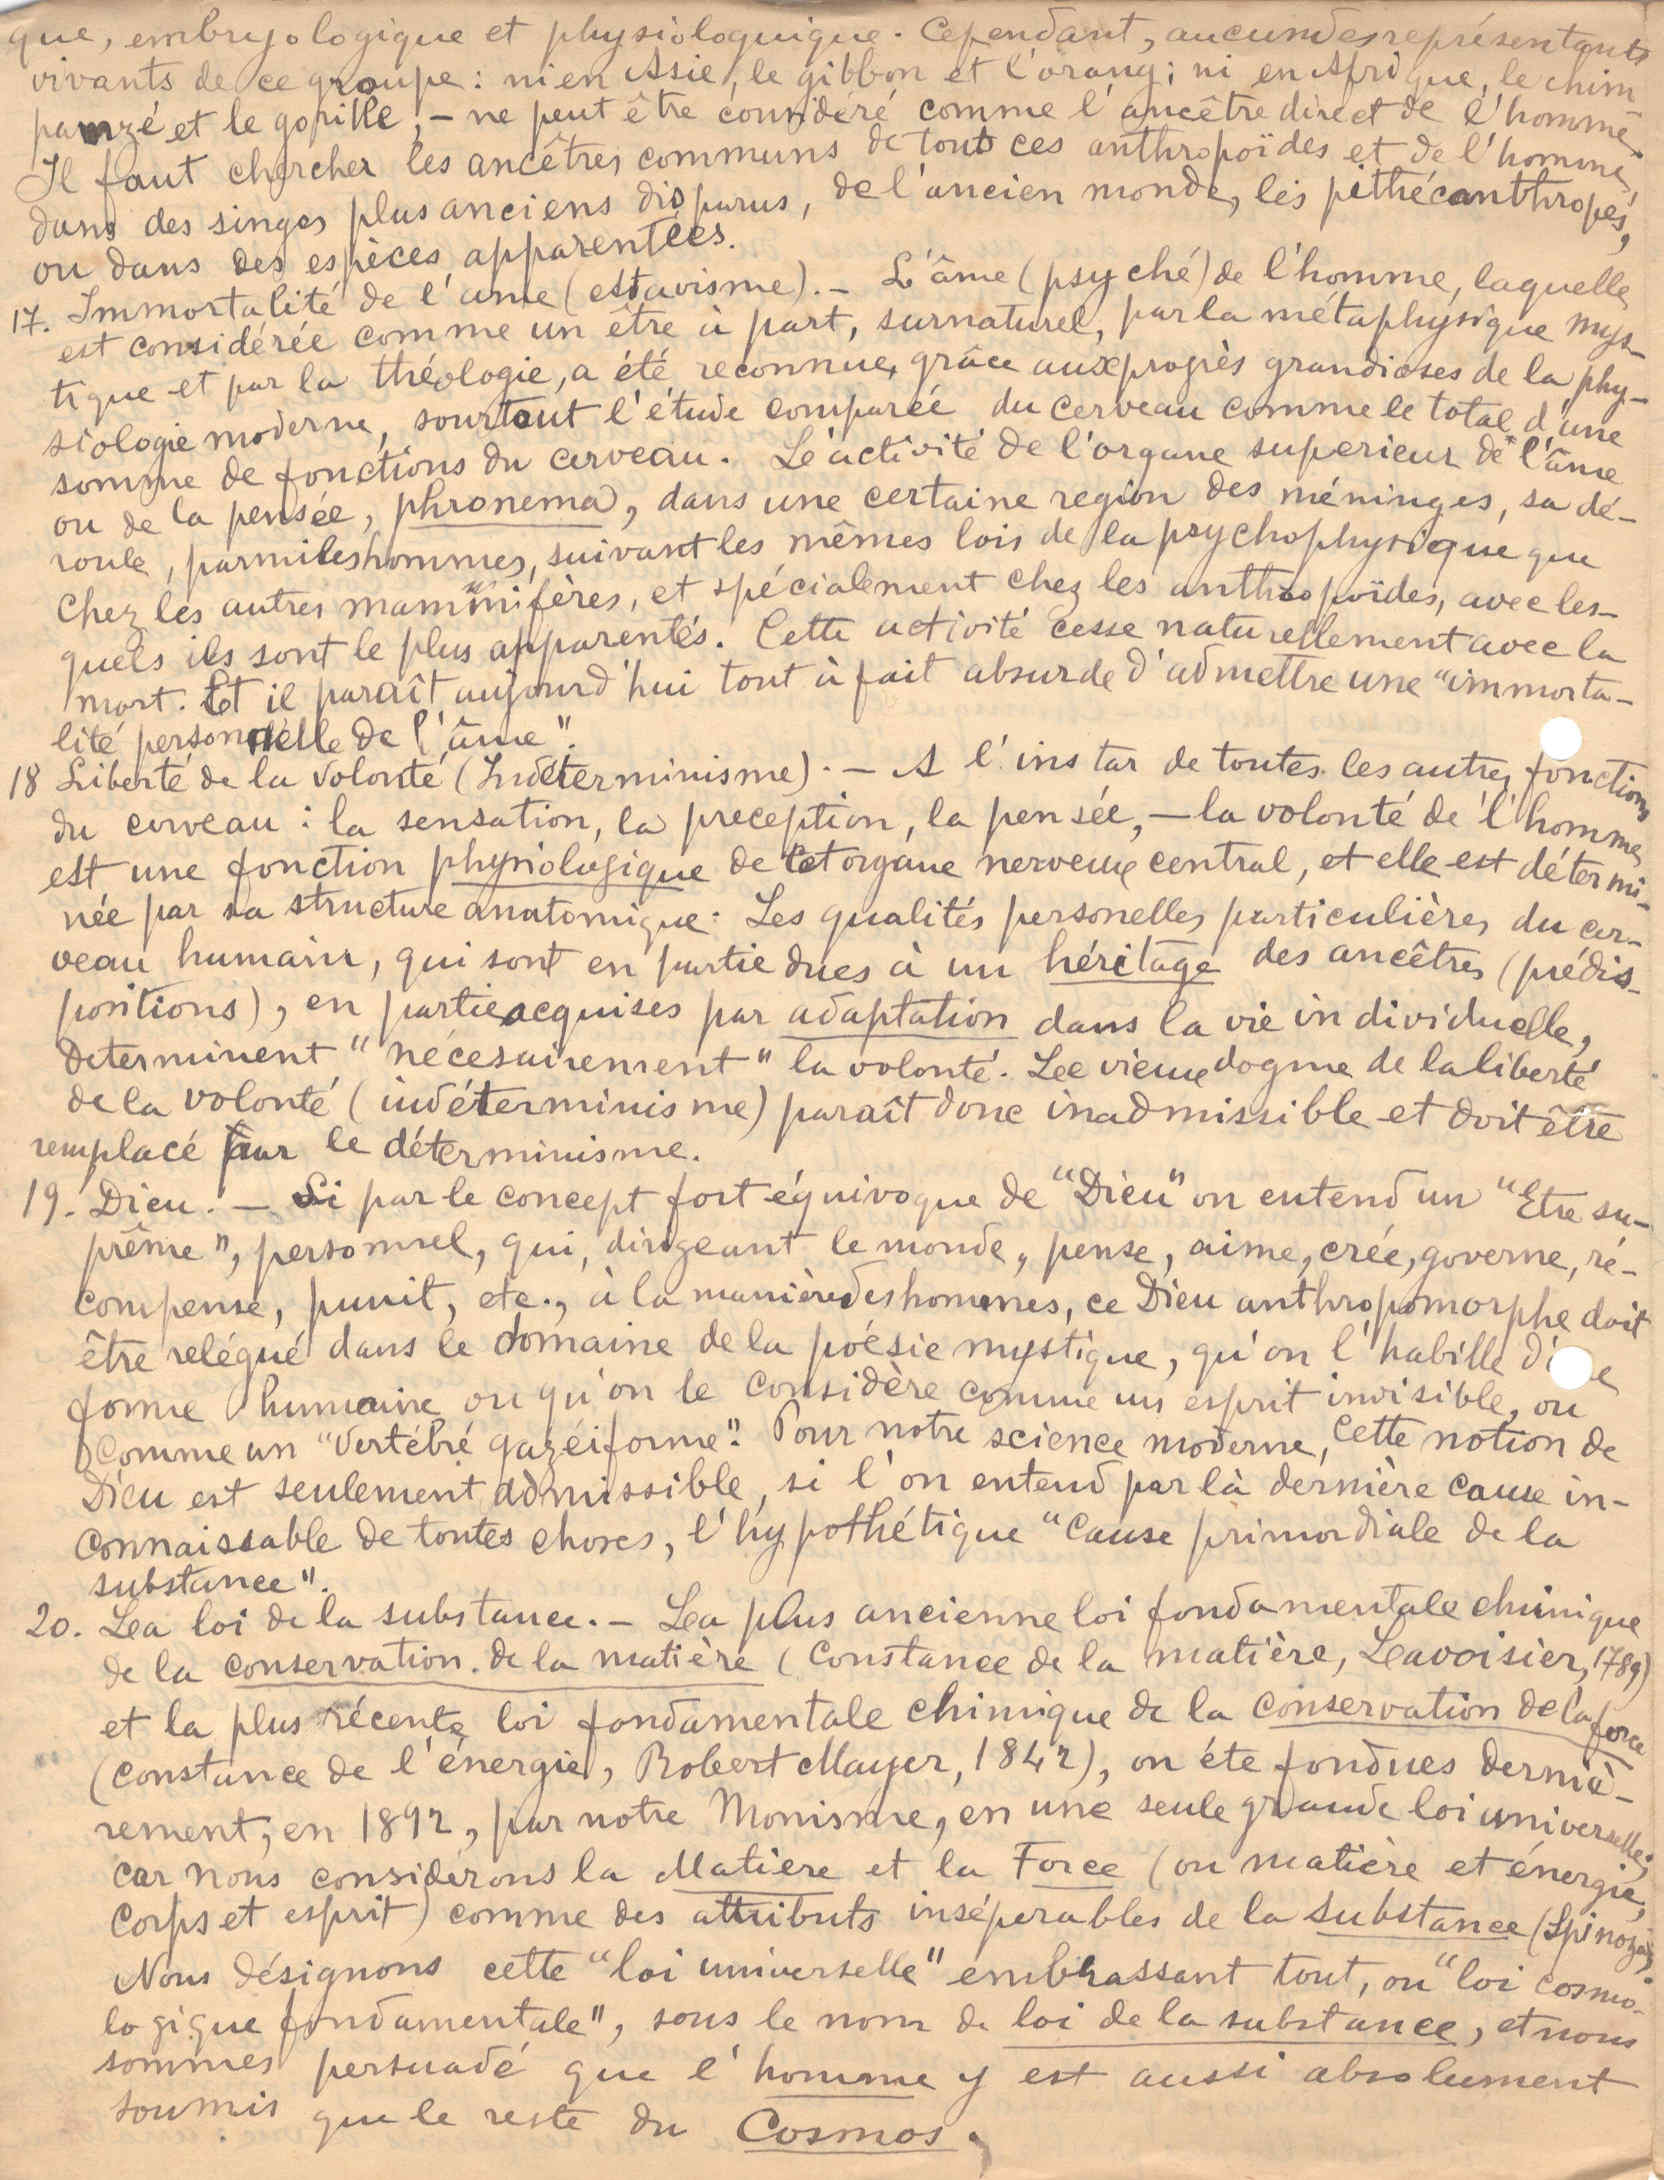 que, embryologique et physiologuique. Cependant, aucundes représentants
vivants de ce groupe : ni en Asie, le gibbon et l'orang; ni en Afrique, le chim
panzé et le gorille, – ne peut être considéré comme l'ancêtre direct de l'homme.
Il faut chercher les ancêtres communs de touts ces anthropoïdes et de l'homme,
dans des singes plus anciens disparus, de l'ancien monde, les pithécanthropes,
ou dans des espèces apparentées.
17. Immortalité de l'ame (). – L'âme (psyché) de l'homme, laquelle
est considérée comme un être à part, surnaturel, par la métaphysique mys-
tique et par la théologie, a été reconnue, grâce aux progrès grandioses de la phy-
siologie moderne, sourtout l'étude comparée du cerveau comme le total d'une
somme de fonctions du cerveau. Le activité de l'organe superieur de l'âme
ou de la pensée, phronema, dans une certaine region des méninges, sa dé-
roule, parmi les hommes, suivant les mêmes lois de la psychophysique que
chez les autres mammifères, et spécialement chez les anthropoïdes, avec les-
quels ils sont le plus apparentés. Cette activité cesse naturellement avec la
mort. Et il paraît aujourd'hui tout à fait absurde d'admettre une "immorta-
lité personnelle de l'âme".
18 Liberté de la volonté (Indéterminisme). – A l'instar de toutes les autres fonctions
du cerveau : la sensation, la preception, la pensée, – la volonté de l'homme
est une fonction physiologique de cet organe nerveux central, et elle est détermi-
née par sa structure anatomique. Les qualités personelles particulières du cer-
veau humain, qui sont en partie dues à un héritage des ancêtres (prédis-
positions), en partie acquises par adaptation dans la vie individuelle,
determinent "nécesairement" la volonté. Le vieux dogme de la liberté
de la volonté (indéterminisme) paraît donc inadmissible et doit être
remplacé par le déterminisme.
19. Dieu. – Si par le concept fort équivoque de "Dieu" on entend un "Etre su-
prême", personnel, qui, dirigeant le monde, pense, aime, crée, governe, ré-
compense, punit, etc., à la manière des hommes, ce Dieu anthropomorphe doit
être relégué dans le domaine de la poésie mystique, qu'on l'habille
forme humaine ou qu'on le considère comme un esprit invisible, ou
comme un "vertébré gazéiforme". Pour notre science moderne, cette notion de
Dieu est seulement admissible, si l'on entend par là dernière cause in-
connaissable de toutes choses, l'hypothétique "cause primordiale de la
substance".
20. La loi de la substance. – La plus ancienne loi fondamentale chimique
de la conservation de la matière (Constance de la matière, Lavoisier, 1789)
et la plus récente loi fondamentale chimique de la conservation de la force
(constance de l'énergie, Robert Mayer, 1842), on éte fondues derniè-
rement, en 1892, par notre Monisme, en une seule grande loi universelle;
car nous considérons la Matiere et la Force (ou matière et énergie,
corps et esprit) comme des attributs inséperables de la substance (Spinoza).
Nous désignons cette "loi universelle" embrassant tout, ou "loi cosmo-
logique fondamentale", sous le nom de loi de la substance, et nous
sommes persuadé que l'homme y est aussi absolument
soumis que le reste du Cosmos.